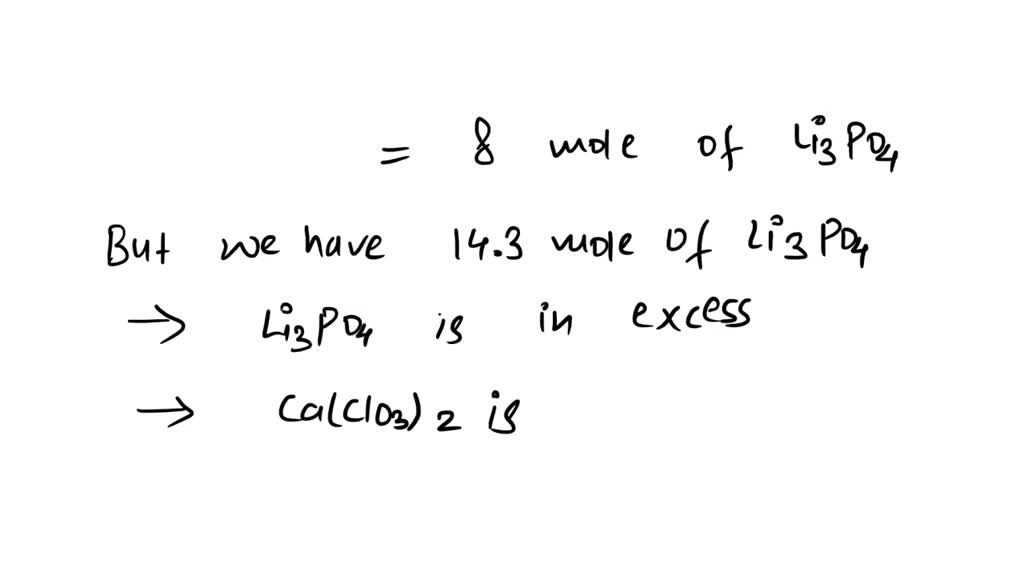 = 8 mole of Li3PO4
But we have 14.3 mole of Li3PO4
→ Li3PO4 is in excess
→ Ca(ClO3)2 is